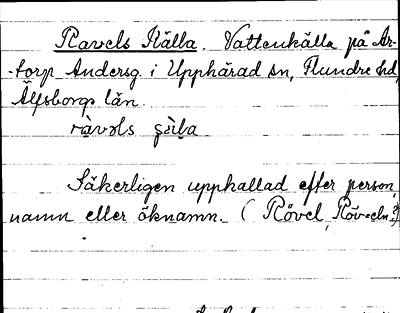 Ravels Källa. Vattenkälla på Ar-
-torp Andersg. i Upphärad sn, Flundre hd,
Älfsborgs län.
ràvəls
Säkerligen upphallad efter person
namn eller öknamn. (Rövel, Röveln?)